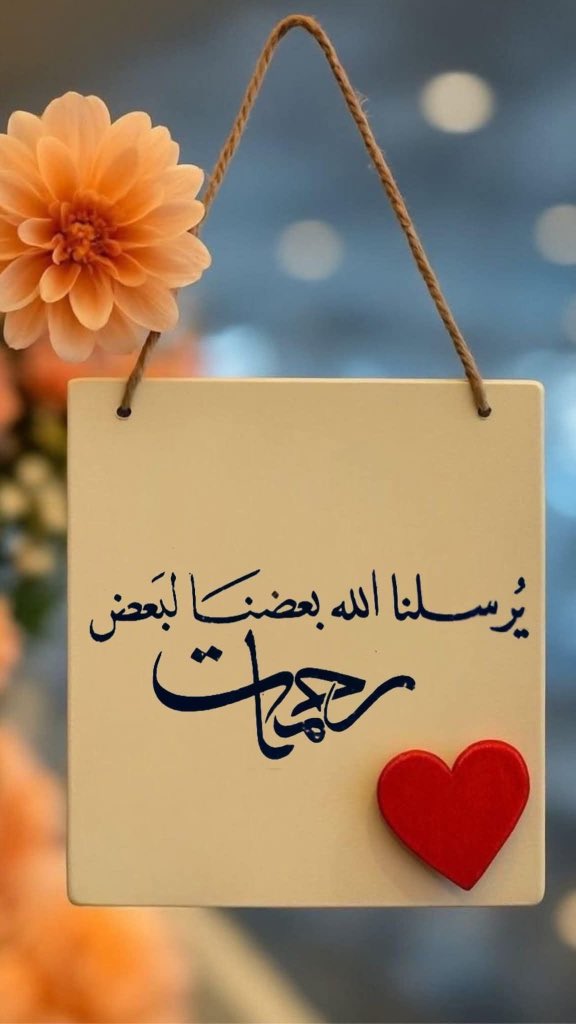 يُرسلنا الله بعضنَا لبَعض
رحمات